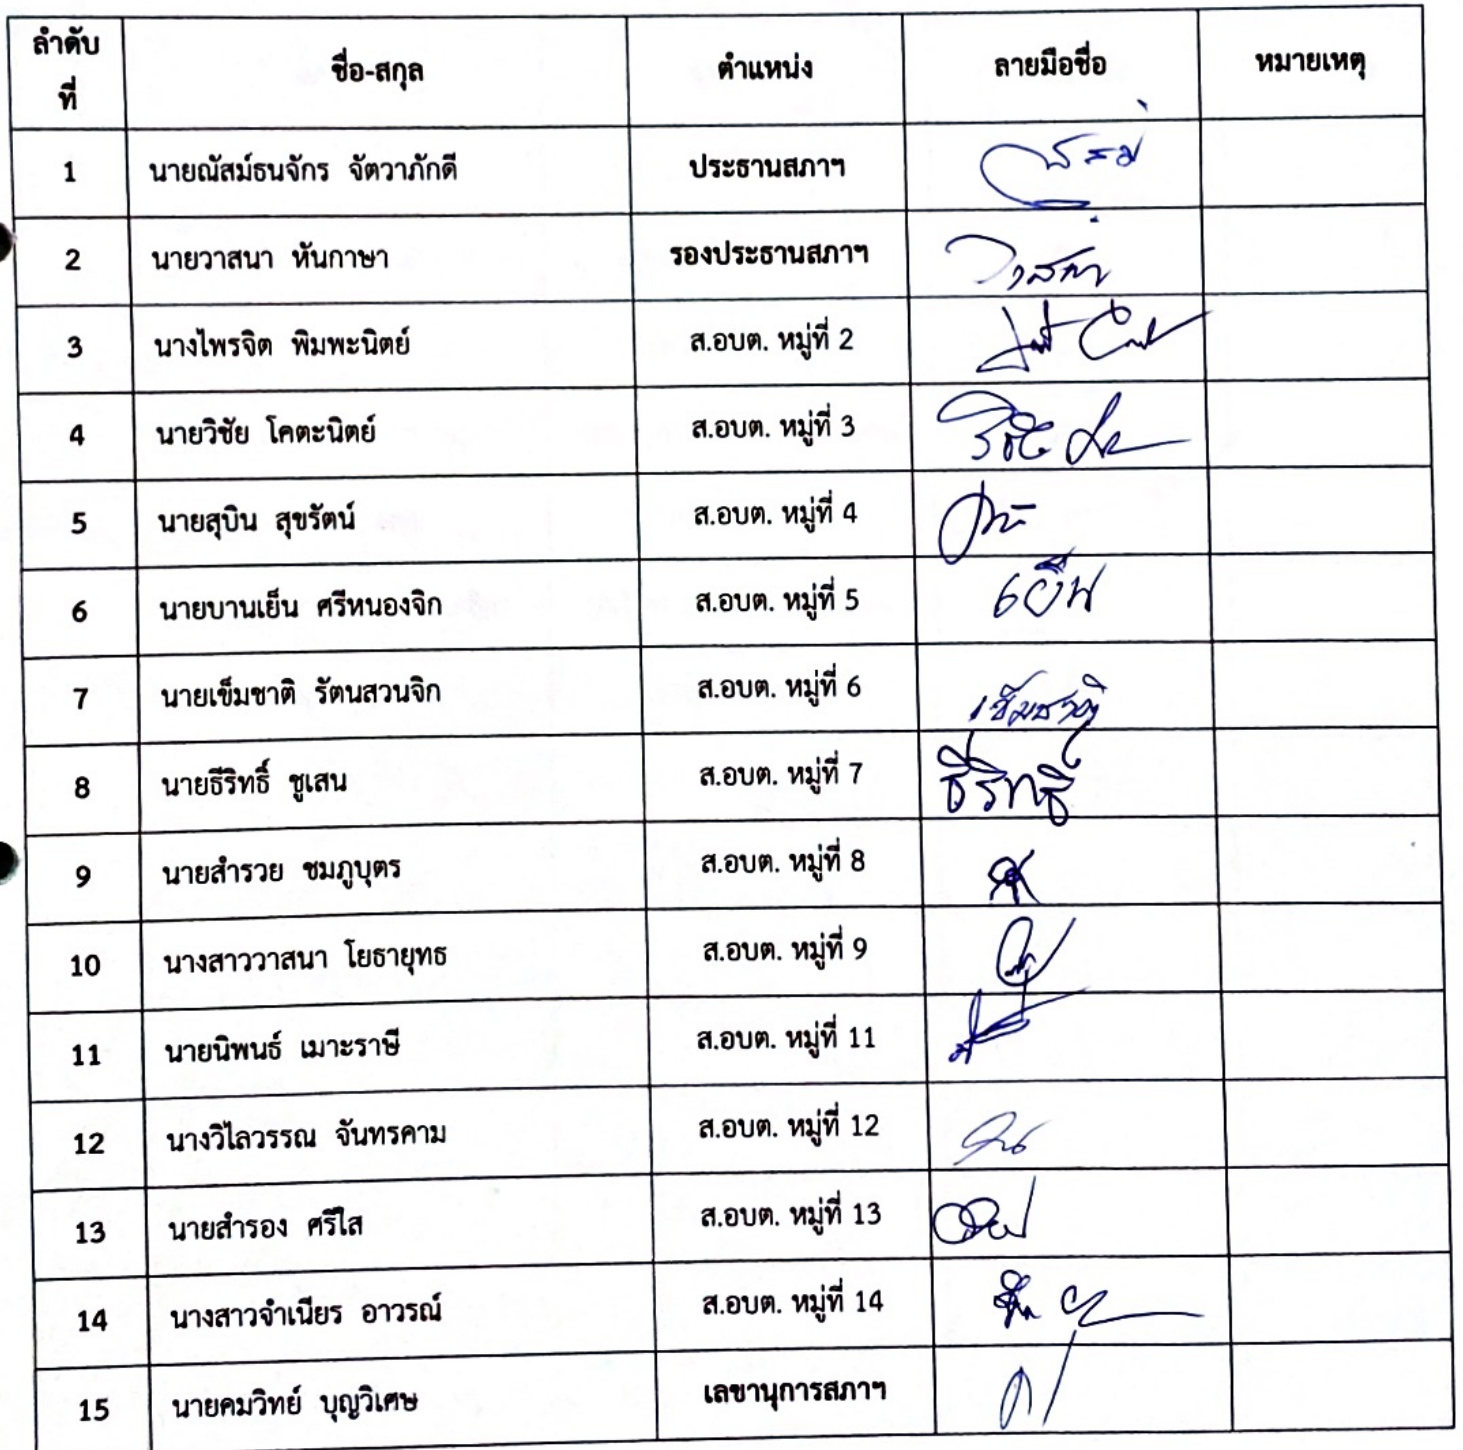 ลำดับที่ ชื่อ-สกุล ตำแหน่ง ลายมือชื่อ หมายเหตุ
1 นายณัสม์ธนจักร จัตวาภักดี ประธานสภาฯ
2 นายวาสนา หันกาษา รองประธานสภาฯ วาสนา
3 นางไพรจิต พิมพะนิตย์ ส.อบต. หมู่ที่ 2
4 นายวิชัย โคตะนิตย์ ส.อบต. หมู่ที่ 3
5 นายสุบิน สุขรัตน์ ส.อบต. หมู่ที่ 4
6 นายบานเย็น ศรีหนองจิก ส.อบต. หมู่ที่ 5 เย็น
7 นายเข็มชาติ รัตนสวนจิก ส.อบต. หมู่ที่ 6 เข็มชาติ
8 นายธีริทธิ์ ชูเสน ส.อบต. หมู่ที่ 7 ธีริทธิ์
9 นายสำรวย ชมภูบุตร ส.อบต. หมู่ที่ 8
10 นางสาววาสนา โยธายุทธ ส.อบต. หมู่ที่ 9
11 นายนิพนธ์ เมาะราษี ส.อบต. หมู่ที่ 11
12 นางวิไลวรรณ จันทรคาม ส.อบต. หมู่ที่ 12
13 นายสำรอง ศรีใส ส.อบต. หมู่ที่ 13
14 นางสาวจำเนียร อาวรณ์ ส.อบต. หมู่ที่ 14
15 นายคมวิทย์ บุญวิเศษ เลขานุการสภาฯ